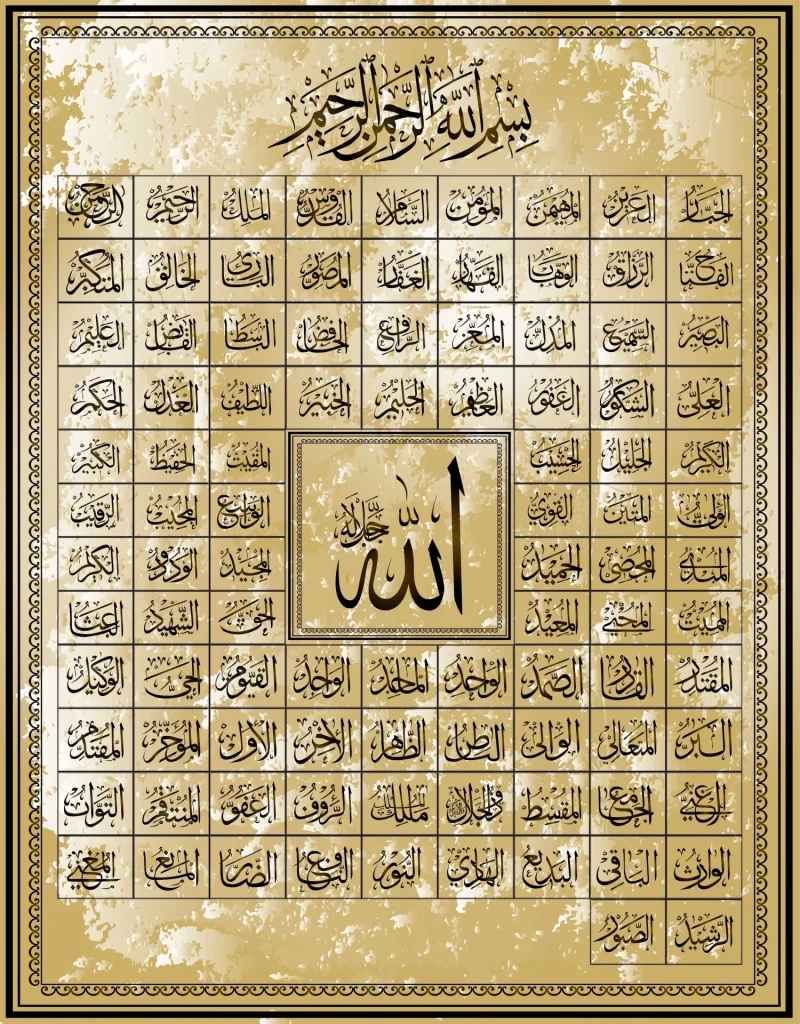 بِسْمِ اللَّهِ الرَّحْمَنِ الرَّحِيمِ
الرحمن
الرحيم
الملك
القدوس
السلام
المؤمن
المهيمن
العزيز
الجبار
المتكبر
الخالق
البارئ
المصور
الغفار
القهار
الوهاب
الرزاق
الفتاح
العليم
القابض
الباسط
الخافض
الرافع
المعز
المذل
السميع
البصير
الحكم
العدل
اللطيف
الخبير
الحليم
العظيم
الغفور
الشكور
العلي
الكبير
الحفيظ
المقيت
الحسيب
الجليل
الرقيب
المجيب
الواسع
الله جل جلاله
القوي
المتين
الولي
الودود
المجيد
الحميد
المحصي
المبدئ
الباعث
الشهيد
الحق
المعيد
المحيي
المميت
الوكيل
الحي
القيوم
الواجد
الماجد
الواحد
الصمد
القادر
المقتدر
المقدم
المؤخر
الأول
الآخر
الظاهر
الباطن
الوالي
المتعالي
البر
التواب
المنتقم
العفو
الرؤوف
مالك الملك
ذو الجلال والإكرام
المقسط
الجامع
الغني
المغني
المانع
الضار
النافع
النور
الهادي
البديع
الباقي
الوارث
الرشيد
الصبور